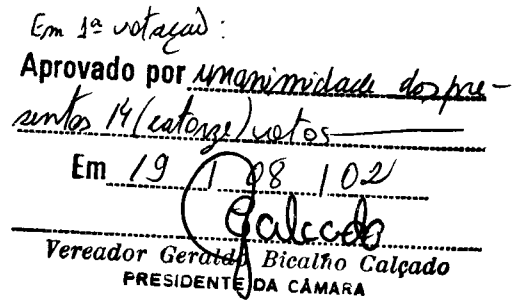 Em 1ª votação:
Aprovado por unanimidade dos pre-
sentes 14 (catorze) votos
Em 19 / 08 / 02
Calcado
Vereador Geraldo Bicalho Calçado
PRESIDENTE DA CÂMARA